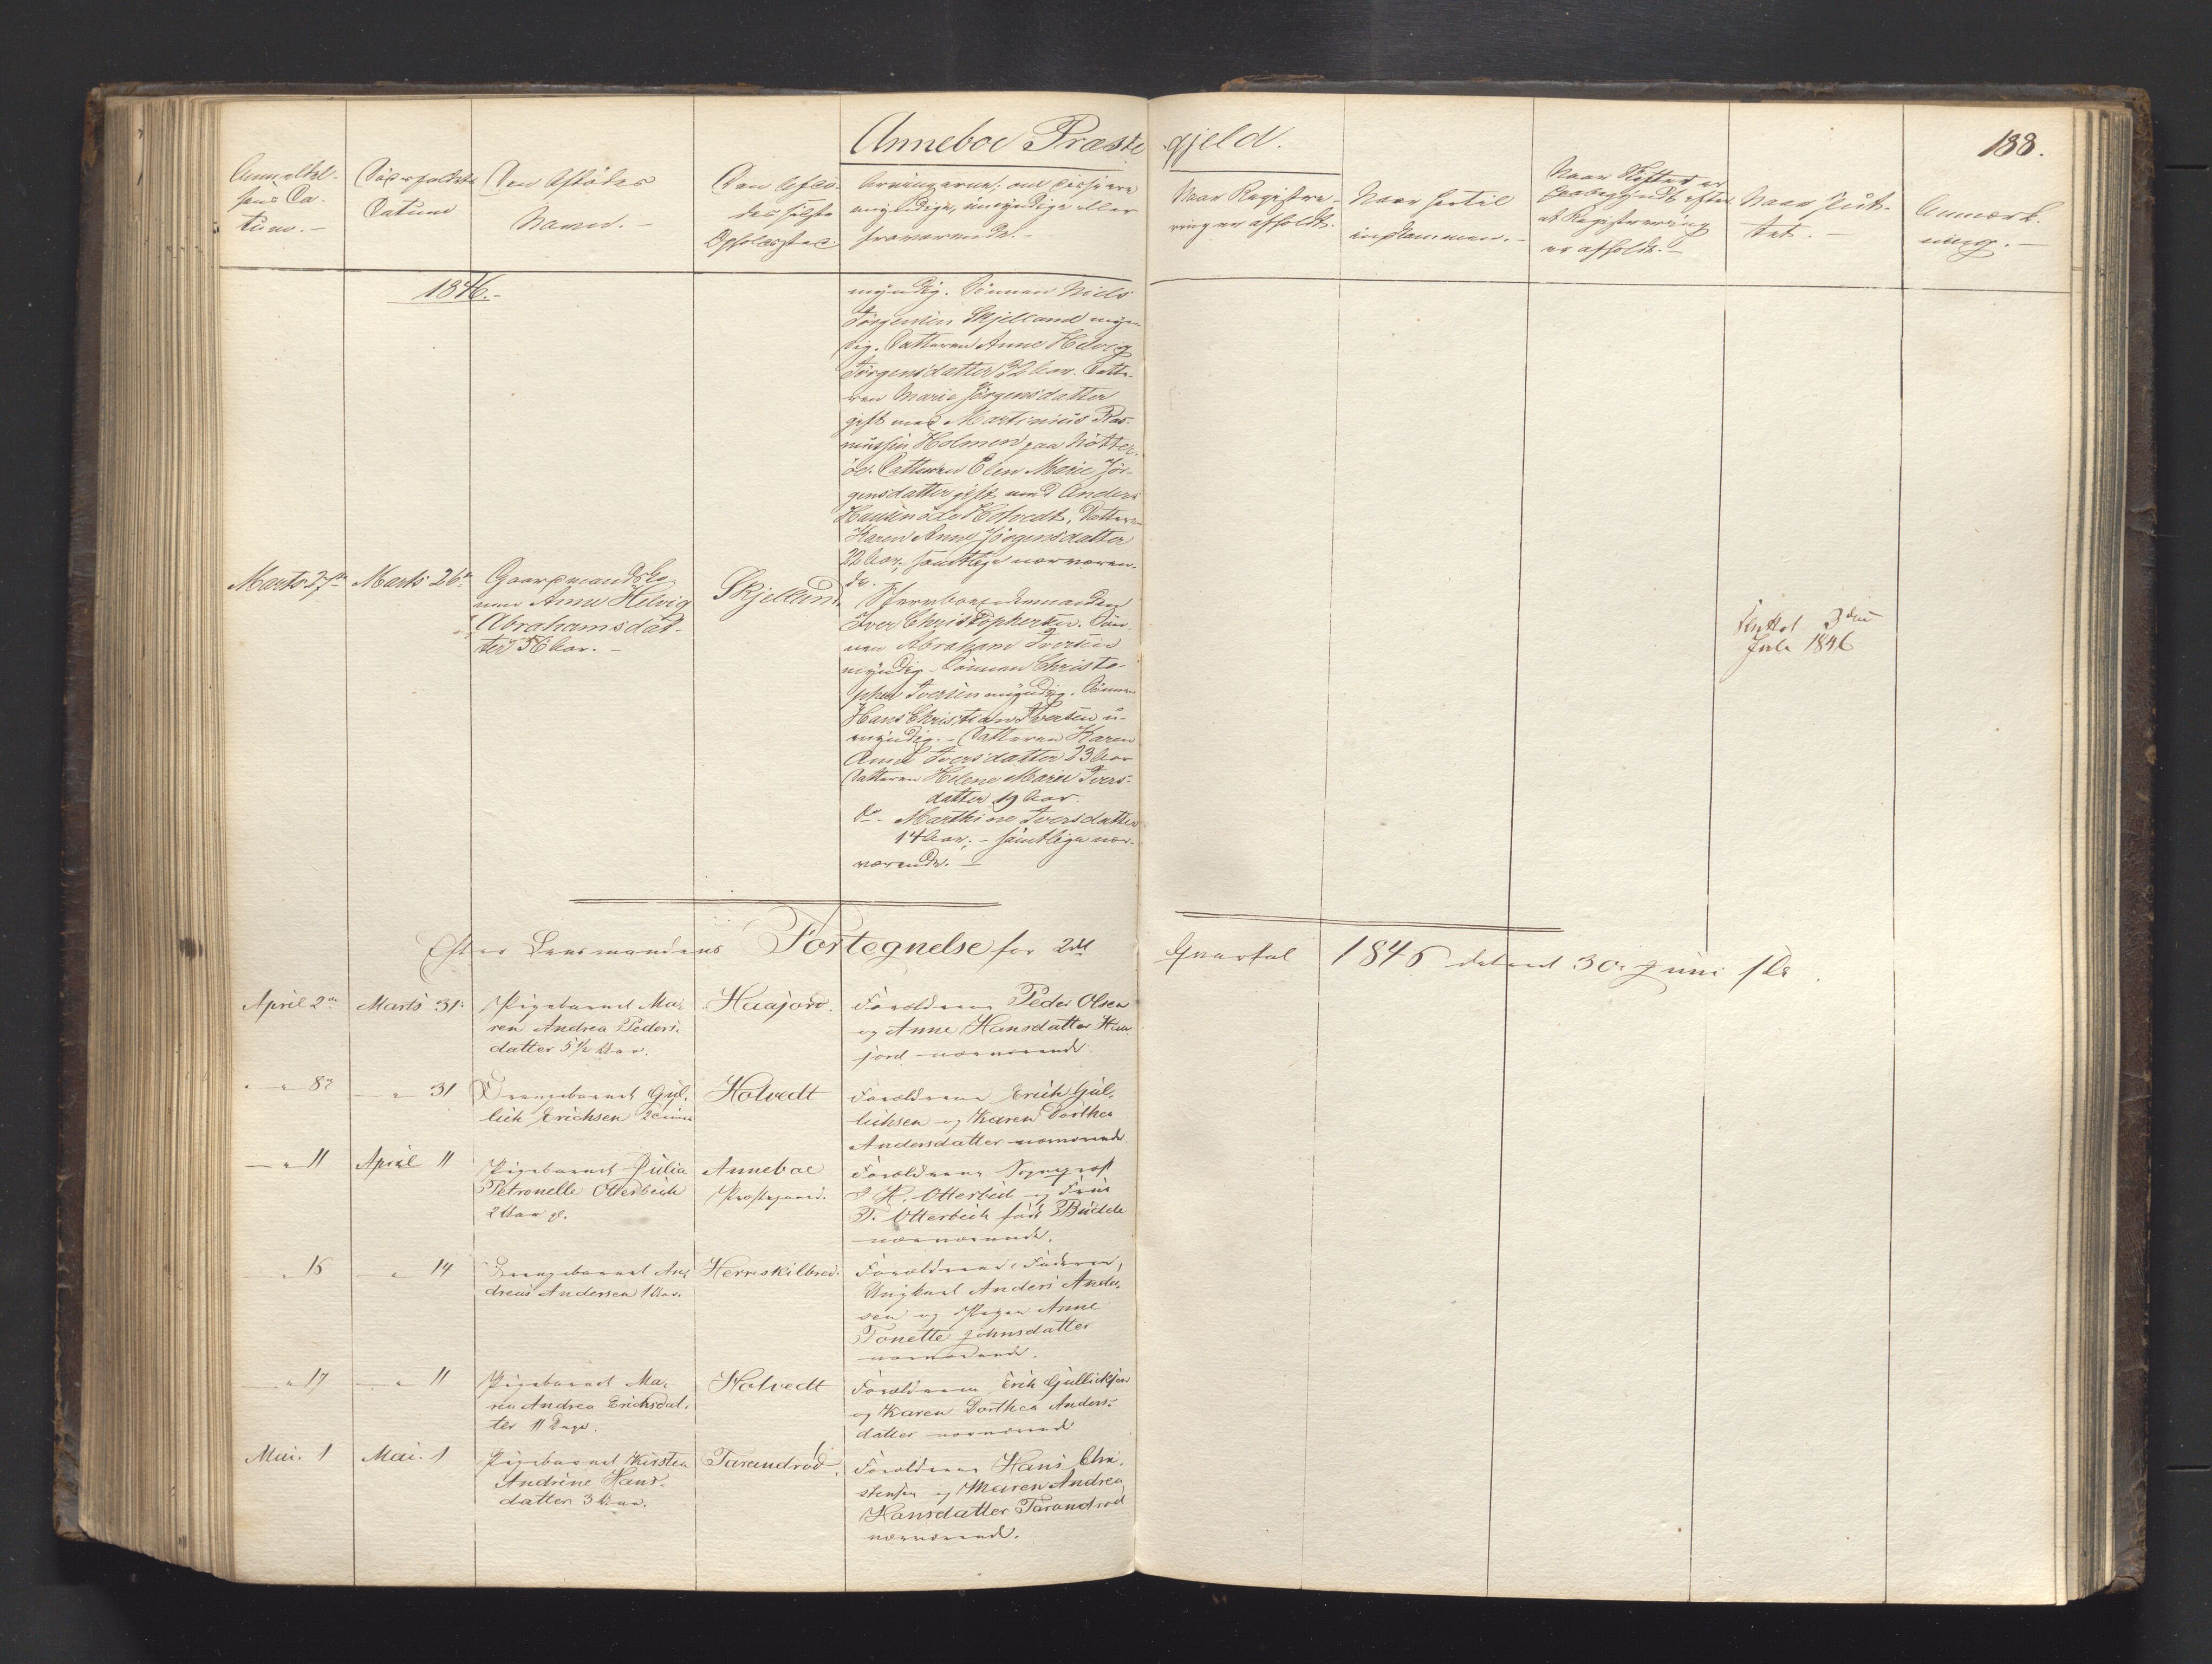 Anneboe Præstegjeld.
188.
Anmeldel-
sens Da-
tum. -
Dödsfaldets
Datum
Den Afdödes
Navn. -
Den Afdö-
des sidste
Opholdssted.
Arvingerne, om disse ere
myndige, umyndige eller
fraværende. -
Naar Registre-
ringen afholdt.
Naar hertil
indkommen. -
Naar Skiftet er
paabegyndt efter
at Registrering
er afholdt. -
Naar slut-
tet. -
Anmærk-
ning. -
1846. -
myndig. Sönnen Niels
Jörgensen Skjelland myn-
dig. Datteren Anne Helvig
Jörgensdatter 32 Aar. Datte-
ren Marie Jörgensdatter
gift med Martinius Ras-
mussen Holmen paa Nötter-
öe. Datteren Elen Marie Jör-
gensdatter gift med Anders
Hansen Holvedt, Datteren
Karen Anne Jörgensdatter
22 Aar, samtlige nærværen-
de.
Marts 27de
Marts 26de
Gaardmandsko-
nen Anne Helvig
Abrahamsdat-
ter 56 Aar. -
Skjelland
Iver Christophersen. Sön-
nen Abraham Iversen
myndig. Sönnen Christo-
pher Iversen myndig. Sönnen
Hans Christian Iversen u-
myndig. - Datteren Karen
Anne Iversdatter 23 Aar
Datteren Helene Marie Ivers-
datter 19 Aar.
Do - Marthine Iversdatter
14 Aar; - samtlige nær-
værende. -
sluttet 3die
Juli 1846
Efter Lensmandens Fortegnelse for 2det Qvartal 1846 dateret 30 Juni s. A.
April 2den
Marts 31
Pigebarnet Ma-
ren Andrea Peders-
datter 5 1/2 Aar.
Haajord.
Forældrene Peder Olsen
og Anne Hansdatter Haa-
jord nærværende.
- " 8de
- " 31
Drengebarnet Gul-
lich Erichsen
Holvedt
Forældrene Erich Gul-
lichsen og Karen Dorthea
Andersdatter nærværende.
- " 11
April 11
Pigebarnet Julia
Petronelle Otterbech
2 Aar gl.
Anneboe
Præstegaard.
Forældrene Sognepræst
J H. Otterbech og Frue
T. Otterbech föd Budde
nærværende.
- " 15
- " 14
Drengebarnet An-
dreas Andersen 1 Aar.
Herreskilbred.
Forældrene: Faderen,
Ungkarl Anders Ander-
sen og Pigen Anne
Tonette Johnsdatter
nærværende.
- " 17
- " 11
Pigebarnet Ma-
ren Andrea Erichsdat-
ter 11 Dage.
Holvedt
Forældrene Erik Gullicksen
og Karen Dorthea Anders-
datter nærværende
Mai. 1
Mai. 1
Pigebarnet Kirsten
Andrine Hans-
datter 3 Aar.
Tarandröd.
Forældrene Hans Chri-
stensen og Maren Andrea
Hansdatter Tarandröd
nærværende.